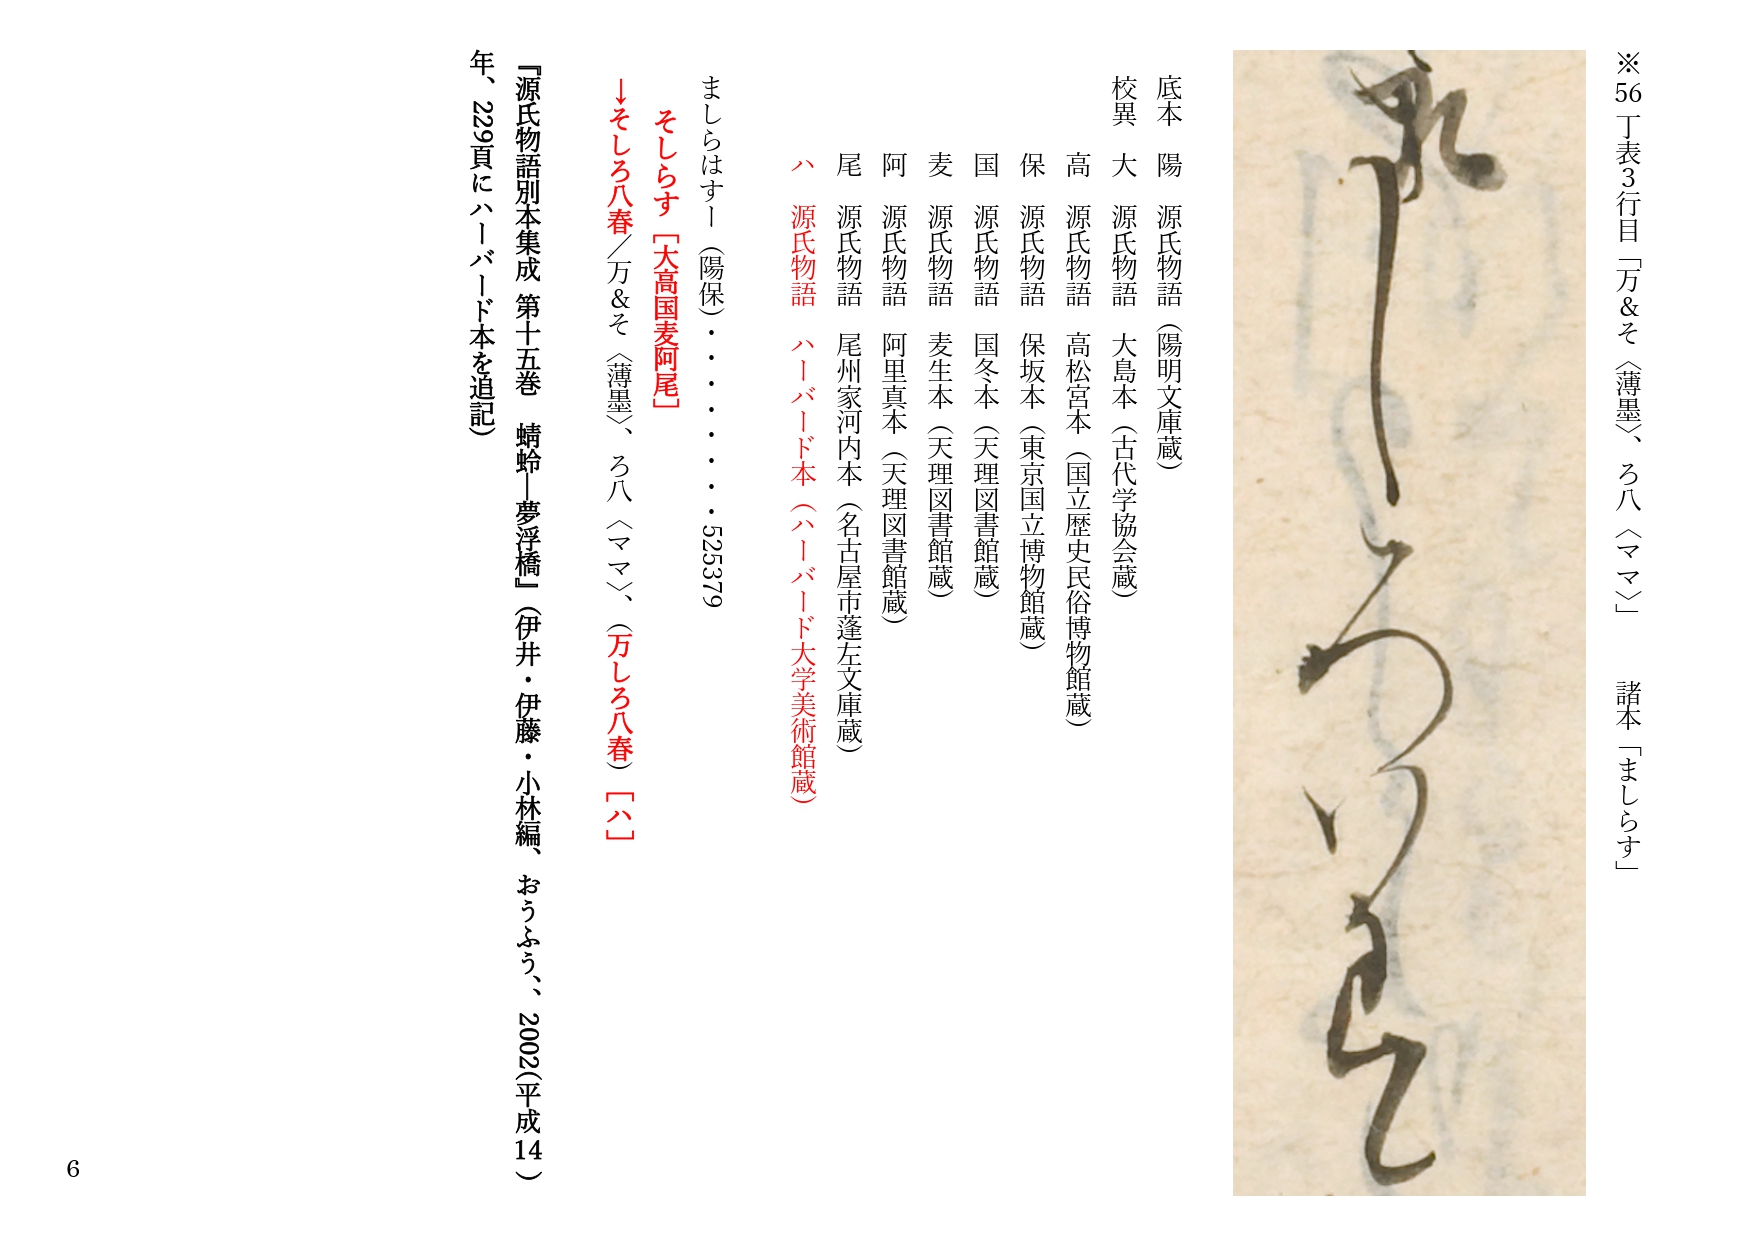 ※56丁表3行目「万&そ〈薄墨〉、ろ八〈ママ〉」　諸本「ましらす」
底本　陽　源氏物語（陽明文庫蔵）
校異　大　源氏物語　大島本（古代学協会蔵）
高　源氏物語　高松宮本（国立歴史民俗博物館蔵）
保　源氏物語　保坂本（東京国立博物館蔵）
国　源氏物語　国冬本（天理図書館蔵）
麦　源氏物語　麦生本（天理図書館蔵）
阿　源氏物語　阿里真本（天理図書館蔵）
尾　源氏物語　尾州家河内本（名古屋市蓬左文庫蔵）
ハ　源氏物語　ハーバード本（ハーバード大学美術館蔵）
ましらはすー（陽保）・・・・・・・・525379
そしらす［大高国麦阿尾］
→そしろ八春／万&そ〈薄墨〉、ろ八〈ママ〉、（万しろ八春）［ハ］
『源氏物語別本集成 第十五巻　蜻蛉―夢浮橋』（伊井・伊藤・小林編、おうふう、、2002(平成14）
年、229頁にハーバード本を追記）
6